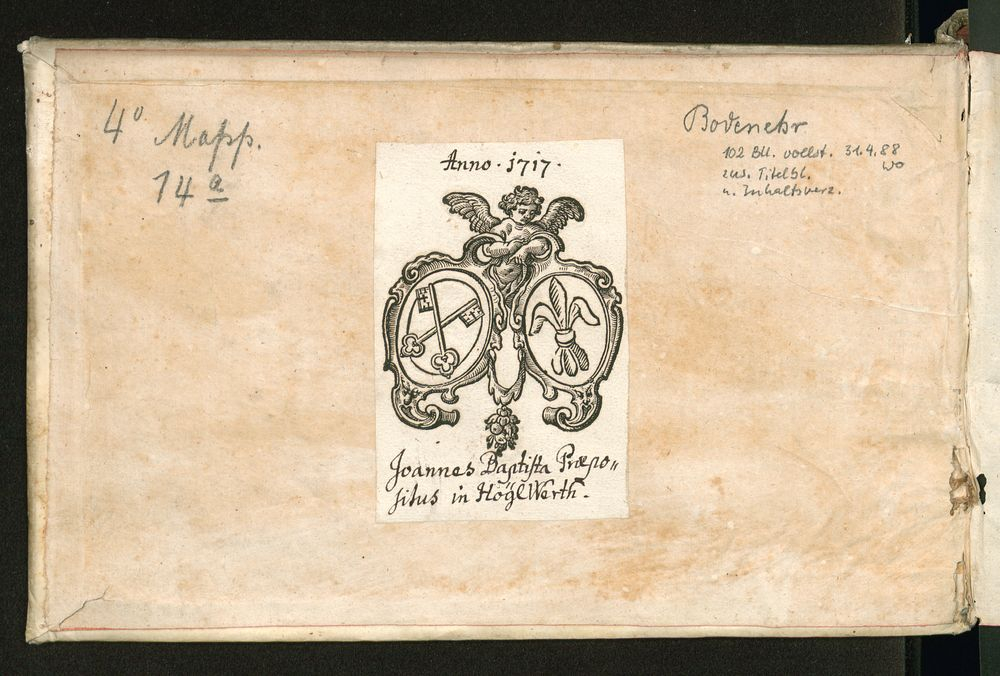 4° Mapp.
14 a
Bodenehr
102 Bll. vollst. 31.4.88
wo
zus. Titelbl.
u. Inhaltsverz.
Anno · 1717 ·
Joannes Baptista Præpo=
situs in HöglWerth.